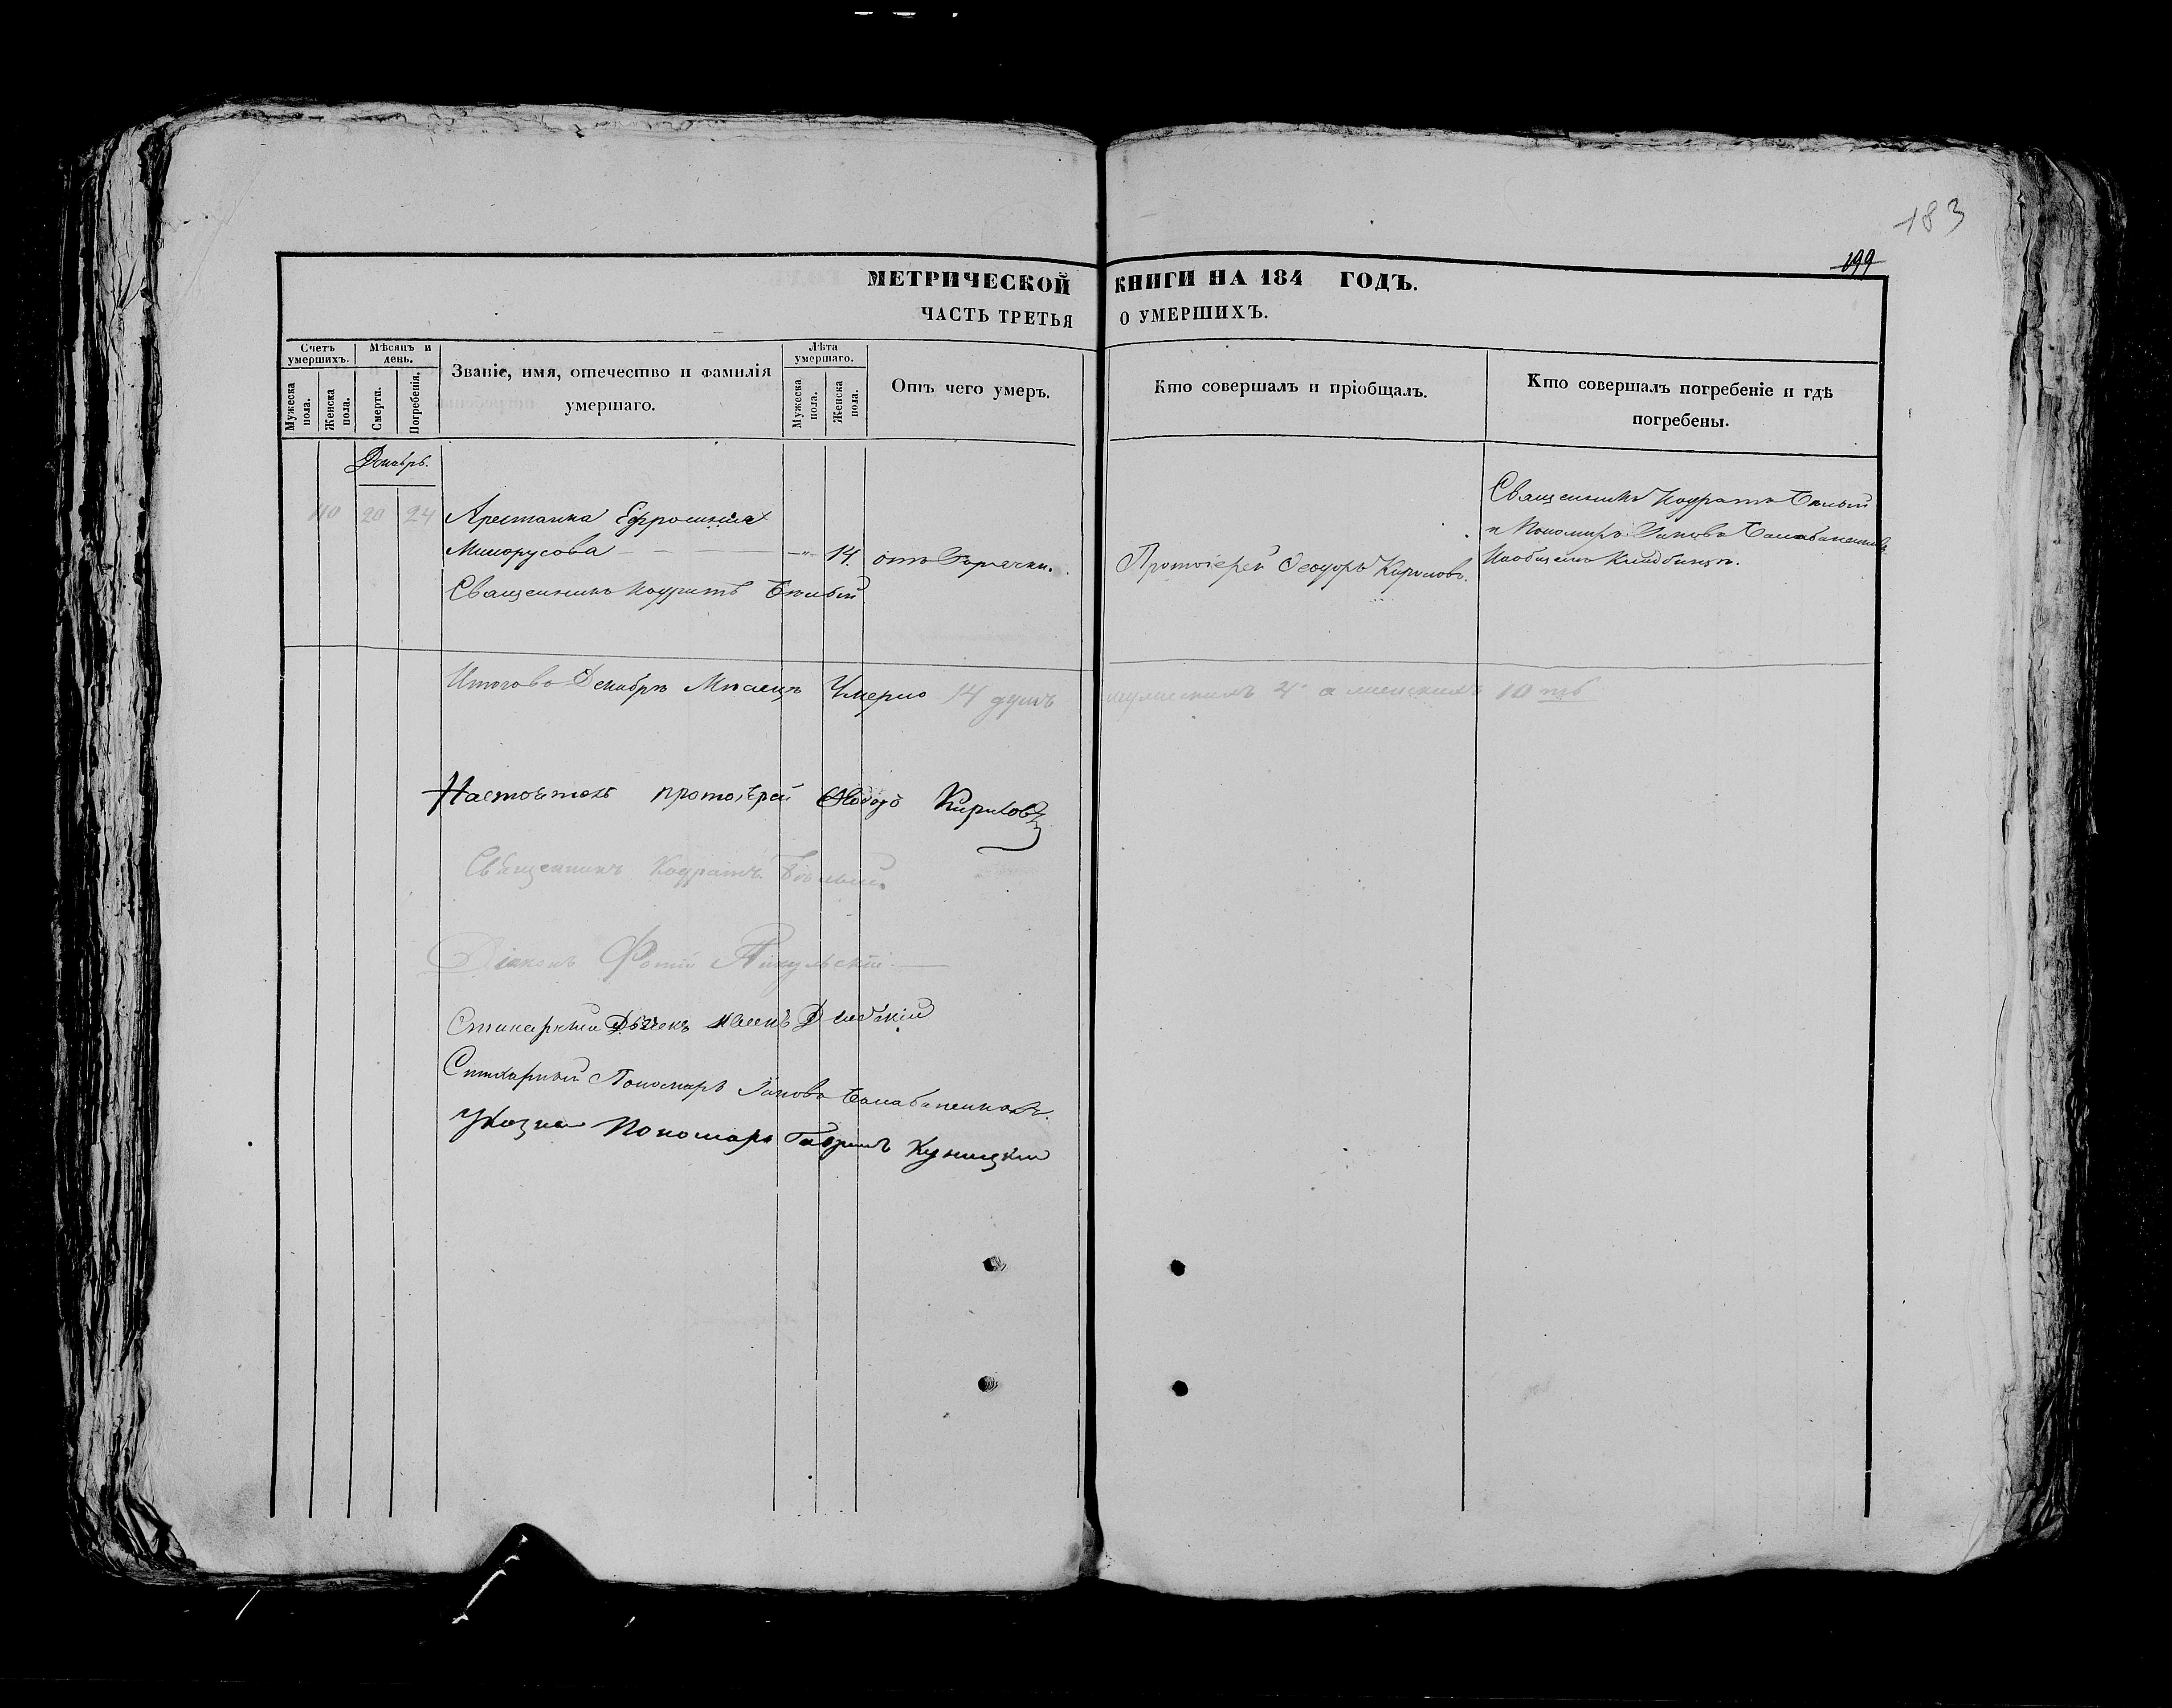 183
199
МЕТРИЧЕСКОЙ КНИГИ НА 184 ГОДЪ.
ЧАСТЬ ТРЕТЬЯ О УМЕРШИХЪ.
Счетъ умершихъ.
Мужеска пола.
Женска пола.
Мѣсяцъ и день.
Смерти.
Погребенія.
Званіе, имя, отечество и фамилія
умершаго.
Лѣта умершаго.
Мужеска пола.
Женска пола.
Отъ чего умеръ.
Кто совершалъ и пріобщалъ.
Кто совершалъ погребеніе и гдѣ
погребены.
Декабрь.
110 20 24 Арестанка Ефросинія
14. отъ Горячки.
Священникъ Кодратъ Бѣлый
Протоіерей Ѳеодоръ Кириловъ.
Священникъ Кодратъ Бѣлый
и Пономарь Іаковъ
Итого во Декабрѣ Мѣсяцѣ Умерло 14 душъ мужескихъ 4 а женскихъ 10
Настоятель протоіерей Ѳеодоръ Кириловъ
Священникъ Кодратъ Бѣлый.
Діаконъ Фотій
Стихарный Дьячекъ
Стихарный Пономарь Іаковъ
Указный Пономарь Гавріилъ Куницкій